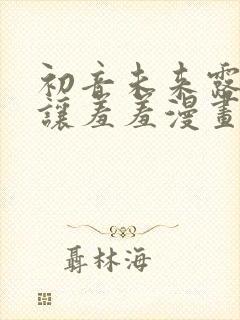 初音未来露
讓羞羞漫畫
聶林海